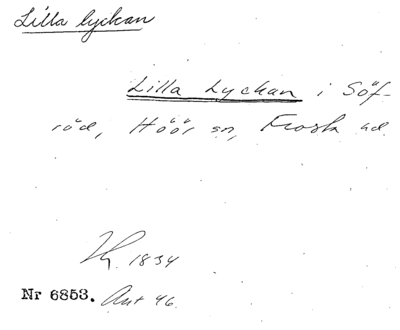 Lilla lyckan
Lilla Lyckan i Söf-
röd, Höör sn, Frosta hd.
1834
Nr 6853. Ant 46.